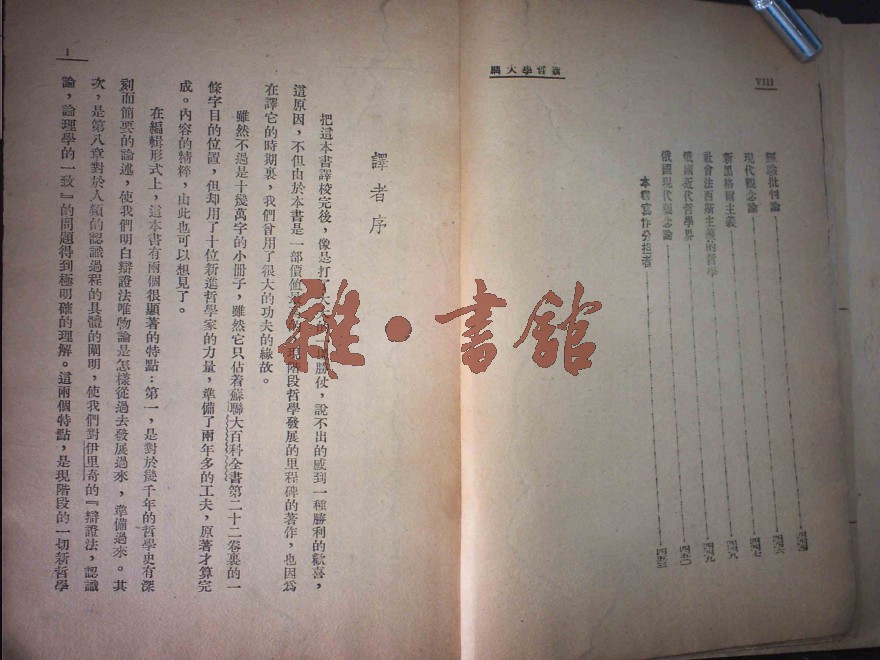 新哲學大綱
VIII
經驗批判論
現代觀念論
新黑格爾主義
社會法西斯主義的哲學
俄國近代哲學界
俄國現代觀念論
本書寫作分担者
譯者序
把這本書譯校完後，像是打了大的一個勝仗，說不出的感到一種勝利的歡喜，
這原因，不但由於本書是一部價值的現階段哲學發展的里程碑的著作，也因爲
在譯它的時期裏，我們曾用了很大的功夫的緣故。
雖然不過是十幾萬字的小冊子，雖然它只佔着蘇聯大百科全書第二十二卷裏的一
條字目的位置，但却用了十位新進哲學家的力量，準備了兩年多的工夫，原著才算完
成。內容的精粹，由此也可以想見了。
在編輯形式上，這本書有兩個很顯著的特點：第一，是對於幾千年的哲學史有深
刻而簡要的論述，使我們明白辯證法唯物論是怎樣從過去發展過來，準備過來。其
次，是第八章對於人類的認識過程的具體的闡明，使我們對伊里奇的『辯證法，認識
論，論理學的一致』的問題得到極明確的理解。這兩個特點，是現階段的一切新哲學
1
雜·書館